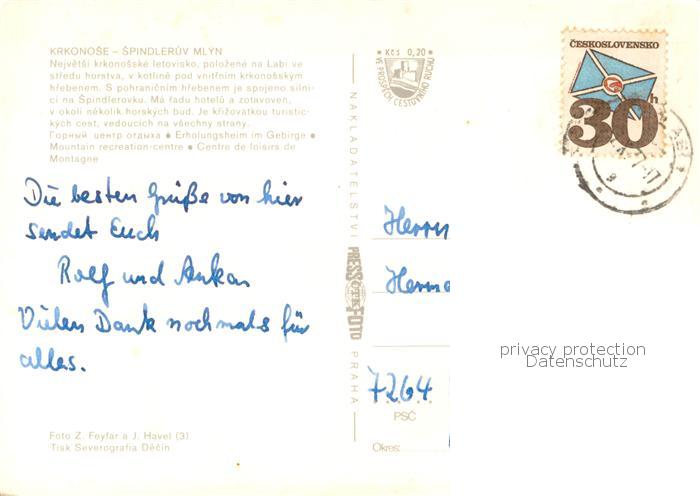 KRKONOŠE – ŠPINDLERŮV MLÝN
Největší krkonošské letovisko, položené na Labi ve
středu horstva, v kotlině pod vnitřním krkonošským
hřebenem. S pohraničním hřebenem je spojeno silni-
cí na Špindlerovku. Má řadu hotelů a zotavoven,
v okolí několik horských bud. Je křižovatkou turistic-
kých cest, vedoucích na všechny strany.
Горный центр отдыха • Erholungsheim im Gebirge •
Mountain recreation-centre • Centre de loisirs de
Montagne
Die besten Grüße von hier
sendet Euch
Rolf und
Vielen Dank nochmals für
alles.
Foto Z. Feyfar a J. Havel (3)
Tisk Severografia Děčín
NAKLADATELSTVÍ
PRESSFOTO
ČTK
PRAHA
Kčs 0,20
VE PROSPĚCH CESTOVNÍHO RUCHU
ČESKOSLOVENSKO
30h
Herrn
Herma
7264
PSČ
Okres:
privacy protection
Datenschutz